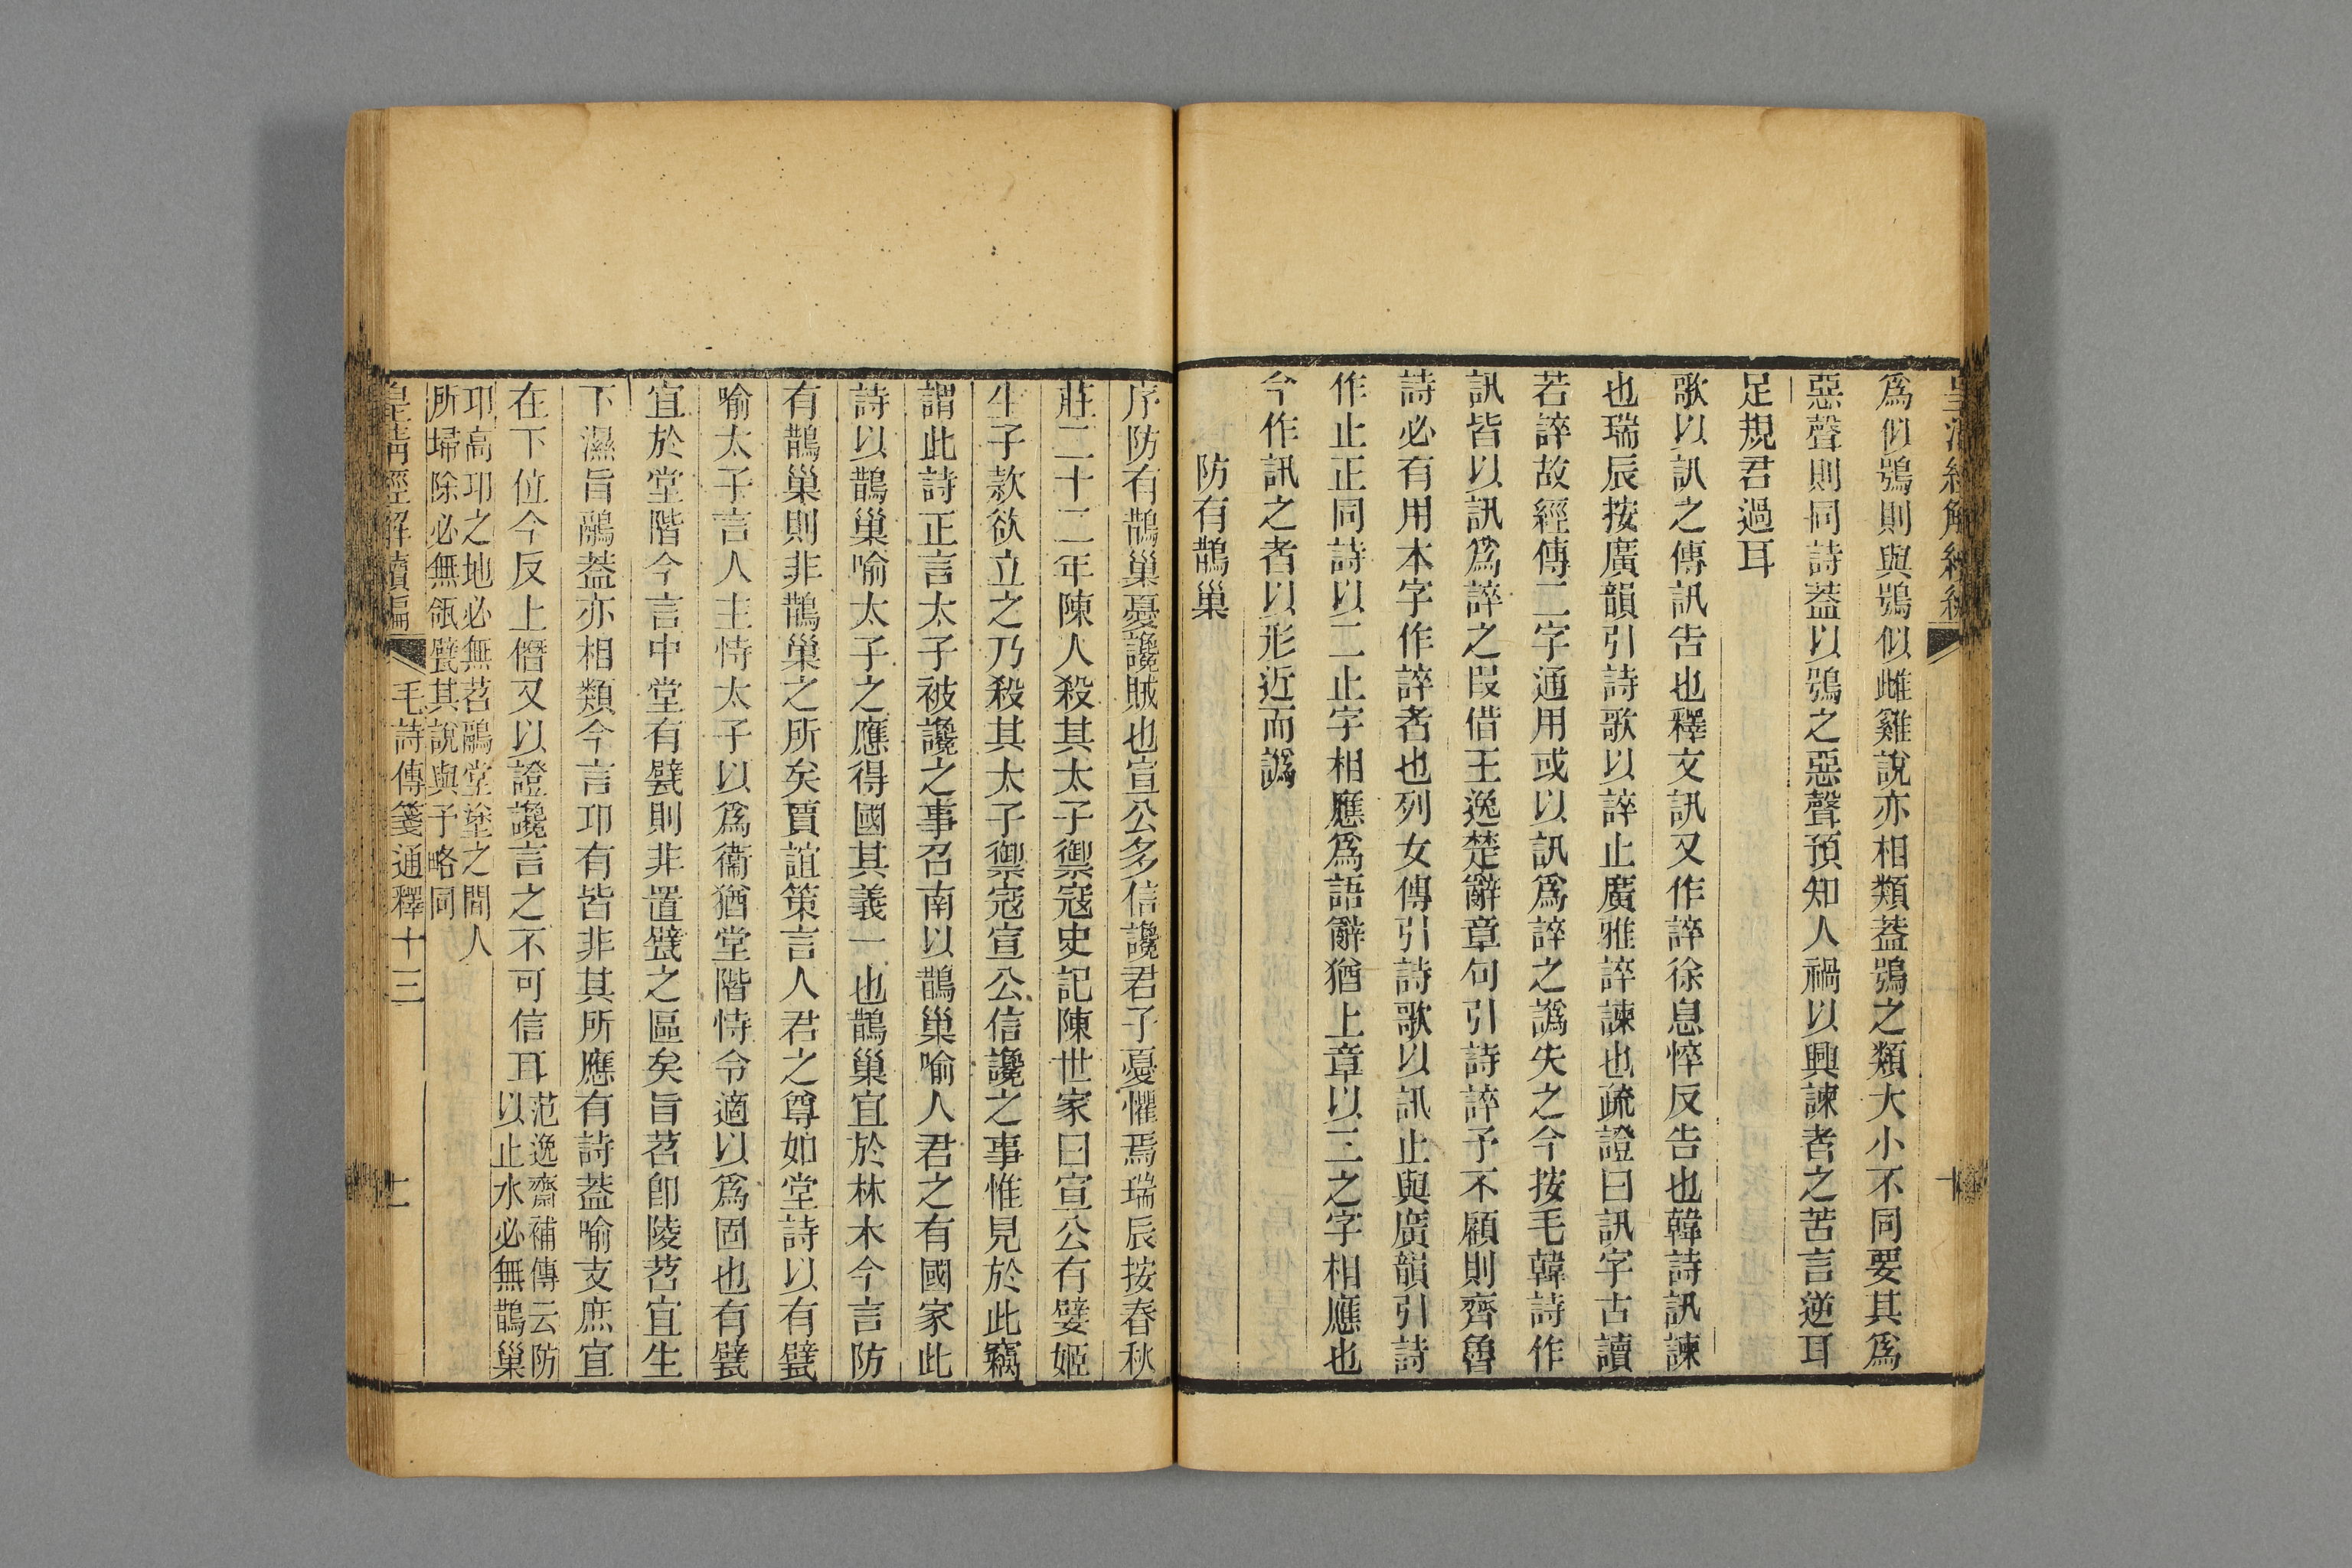 爲似鴞則與鴞似雌雞說亦相類葢鴞之類大小不同要其爲
惡聲則同詩葢以鴞之惡聲預知人禍以興諫者之苦言逆耳
足規君過耳
歌以訊之傳訊告也釋文訊又作誶徐息悴反告也韓詩訊諫
也瑞辰按廣韻引詩歌以誶止廣雅誶諫也疏證曰訊字古讀
若誶故經傳二字通用或以訊爲誶之譌失之今按毛韓詩作
訊皆以訊爲誶之叚借王逸楚辭章句引詩誶予不顧則齊魯
詩必有用本字作誶者也列女傳引詩歌以訊止與廣韻引詩
作止正同詩以二止字相應爲語辭猶上章以三之字相應也
今作訊之者以形近而譌
防有鵲巢
序防有鵲巢憂讒賊也宣公多信讒君子憂懼焉瑞辰按春秋
莊二十二年陳人殺其太子禦寇史記陳世家曰宣公有嬖姬
生子款欲立之乃殺其太子禦寇宣公信讒之事惟見於此竊
謂此詩正言太子被讒之事召南以鵲巢喻人君之有國家此
詩以鵲巢喻太子之應得國其義一也鵲巢宜於林木今言防
有鵲巢則非鵲巢之所矣賈誼策言人君之尊如堂詩以有甓
喻太子言人主恃太子以爲衞猶堂階恃令適以爲固也有甓
宜於堂階今言中堂有甓則非置甓之區矣旨苕卽陵苕宜生
下濕旨鷊葢亦相類今言邛有皆非其所應有詩葢喻支庶宜
在下位今反上僭又以證讒言之不可信耳范逸齋補傳云防
以止水必無鵲巢
邛高邛之地必無苕鷊堂塗之間人
所埽除必無瓴甓其說與予略同
皇淸經解續編
毛詩傳箋通釋十三